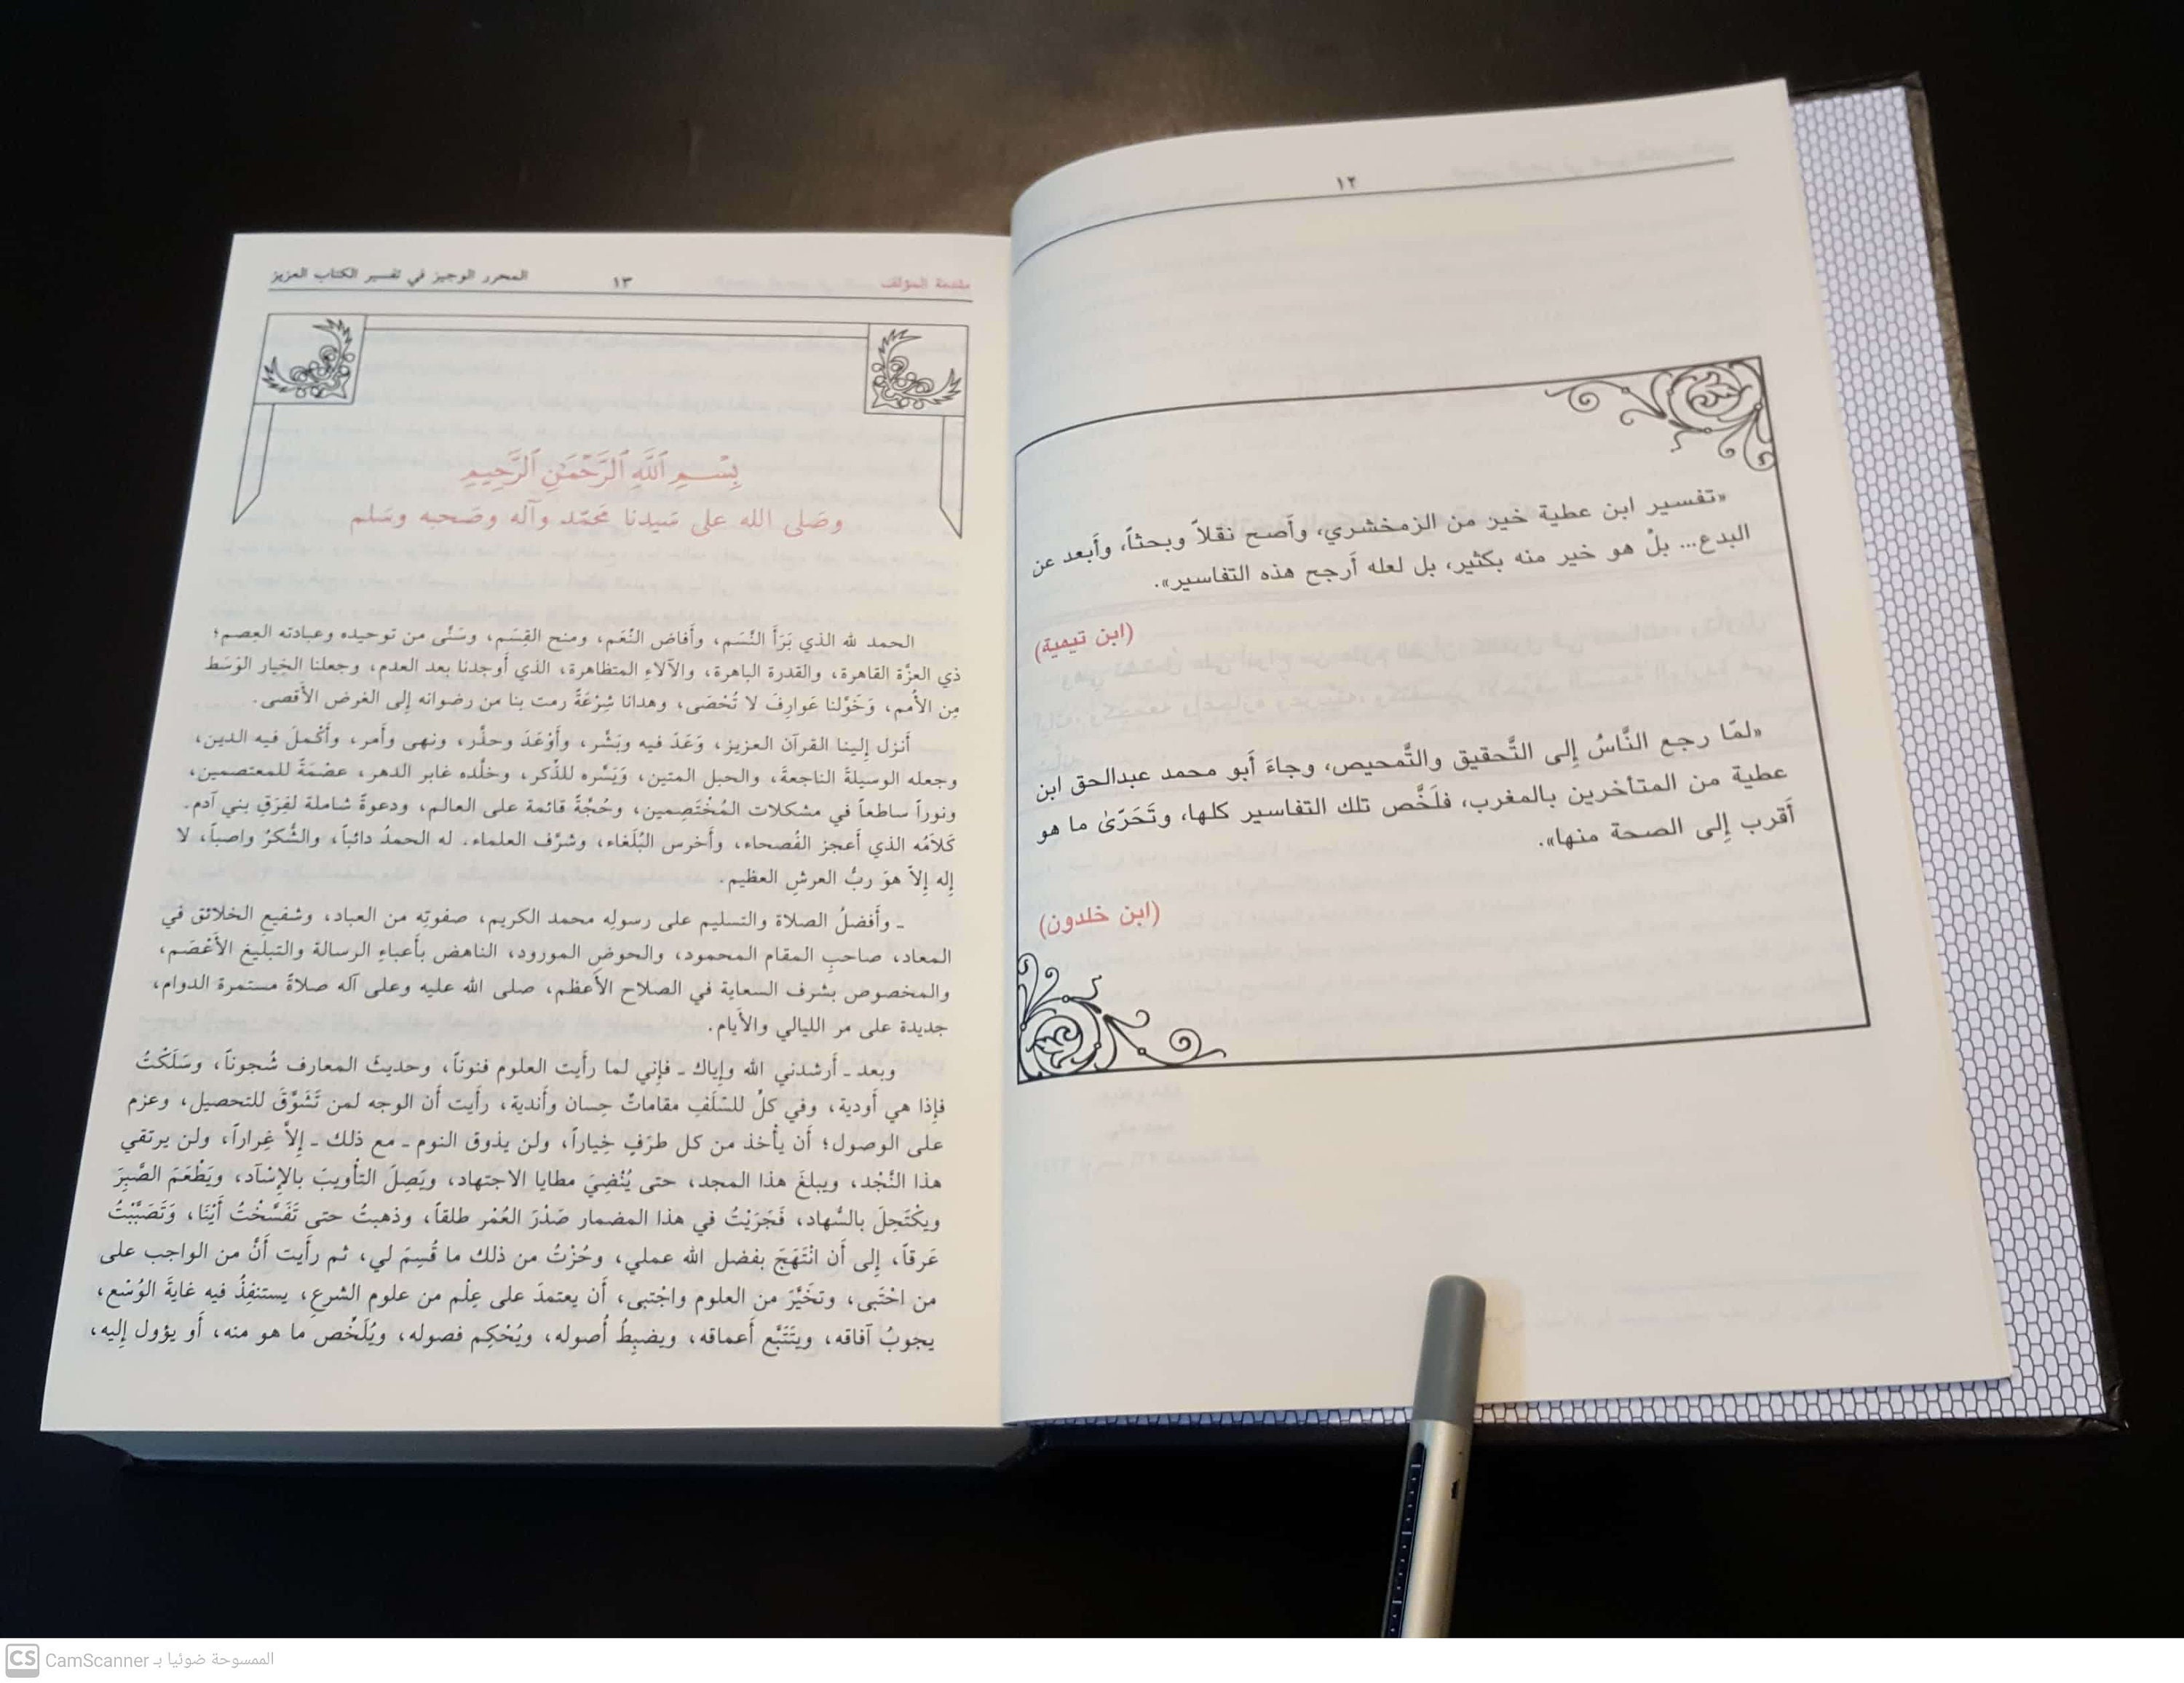 ١٢
«تفسير ابن عطية خير من الزمخشري، وأَصح نقلاً وبحثاً، وأَبعد عن
البدع... بلْ هو خير منه بكثير، بل لعله أَرجح هذه التفاسير».
(ابن تيمية)
«لمّا رجع النَّاسُ إِلى التَّحقيق والتَّمحيص، وجاءَ أَبو محمد عبدالحق ابن
عطية من المتأخرين بالمغرب، فلَخَّص تلك التفاسير كلها، وتَحَرّىٰ ما هو
أَقرب إِلى الصحة منها».
(ابن خلدون)
مقدمة المؤلف ١٣ المحرر الوجيز في تفسير الكتاب العزيز
بِسْمِ ٱللَّهِ ٱلرَّحْمَٰنِ ٱلرَّحِيمِ
وصَلى الله على سَيدنا محَمّد وآله وصَحبه وسَلم
الحمد لله الذي بَرَأَ النَّسَم، وأَفاض النِّعَم، ومنح القِسَم، وسَنَّى من توحيده وعبادته العِصم؛
ذي العزَّة القاهرة، والقدرة الباهرة، والآلاءِ المتظاهرة، الذي أَوجدنا بعد العدم، وجعلنا الخِيار الوَسَط
مِن الأُمم، وَخَوَّلنا عَوارِفَ لا تُحْصَى، وهدانا شِرْعَةً رمت بنا من رضوانه إِلى الغرض الأَقصى.
أَنزل إِلينا القرآن العزيز، وَعَدَ فيه وبَشَّر، وأَوْعَدَ وحذَّر، ونهى وأَمر، وأَكْملَ فيه الدين،
وجعله الوسيلةَ الناجعةَ، والحبل المتين، وَيَسَّره للذِّكر، وخلَّده غابر الدهر، عصْمَةً للمعتصمين،
ونوراً ساطعاً في مشكلات المُخْتَصِمين، وحُجَّةً قائمة على العالم، ودعوةً شاملة لفِرَقِ بني آدم.
كَلاَمُه الذي أَعجز الفُصحاء، وأَخرس البُلَغاء، وشرَّف العلماء. له الحمدُ دائباً، والشُّكرُ واصباً، لا
إِله إِلاَّ هوَ ربُّ العرشِ العظيم.
ـ وأَفضلُ الصلاة والتسليم على رسولِه محمد الكريم، صفوتِه من العباد، وشفيعِ الخلائق في
المعاد، صاحبِ المقام المحمود، والحوضِ المورود، الناهض بأَعباءِ الرسالة والتبليغ الأَعْصَم،
والمخصوص بشرف السعاية في الصلاح الأَعظم، صلى الله عليه وعلى آله صلاةً مستمرة الدوام،
جديدة على مر الليالي والأَيام.
وبعد ـ أَرشدني الله وإِياك ـ فإِني لما رأَيت العلوم فنوناً، وحديثَ المعارف شُجوناً، وسَلَكْتُ
فإِذا هي أَودية، وفي كلٍّ للسَّلَفِ مقاماتٌ حِسان وأَندية، رأَيت أَن الوجه لمن تَشَوَّقَ للتحصيل، وعزم
على الوصول؛ أَن يأْخذ من كل طرَفٍ خِياراً، ولن يذوق النوم ـ مع ذلك ـ إِلاَّ غِراراً، ولن يرتقي
هذا النَّجْد، ويبلغَ هذا المجد، حتى يُنْضِيَ مطايا الاجتهاد، ويَصِلَ التأْويبَ بالإِسْآد، ويَطْعَمَ الصَّبِرَ
ويكْتَحِلَ بالسُّهاد، فَجَرَيْتُ في هذا المضمار صَدْرَ العُمْر طلقاً، وذهبتُ حتى تَفَسَّخْتُ أَيْنَا، وَتَصَبَّبْتُ
عَرقاً، إِلى أَن انْتَهَجَ بفضل الله عملي، وحُزْتُ من ذلك ما قُسِمَ لي، ثم رأَيت أَنَّ من الواجب على
من احْتَبى، وتخَيَّرَ من العلوم واجْتبى، أَن يعتمدَ على عِلْم من علوم الشرعِ، يستنفِذُ فيه غايةَ الوُسْع،
يجوبُ آفاقه، ويتَتَبَّع أَعماقه، ويضبِطُ أُصوله، ويُحْكِم فصوله، ويُلَخِّص ما هو منه، أَو يؤول إِليه،
CS CamScanner الممسوحة ضوئيا بـ